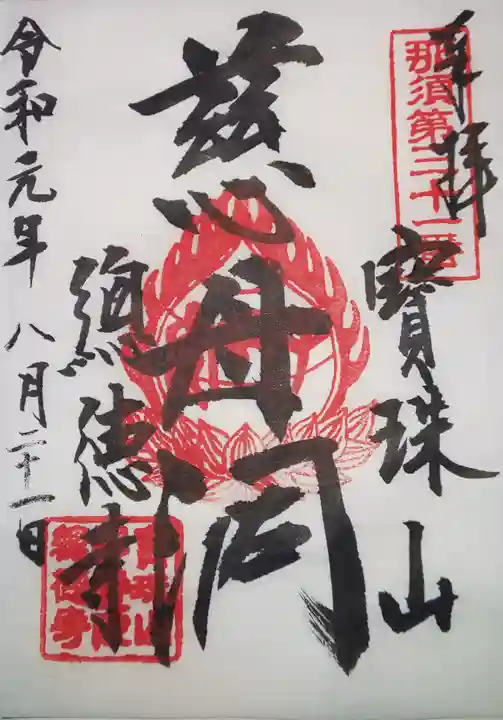 奉拝
那須第三十一番
寶珠山
慈母閣
總徳寺
令和元年八月二十一日